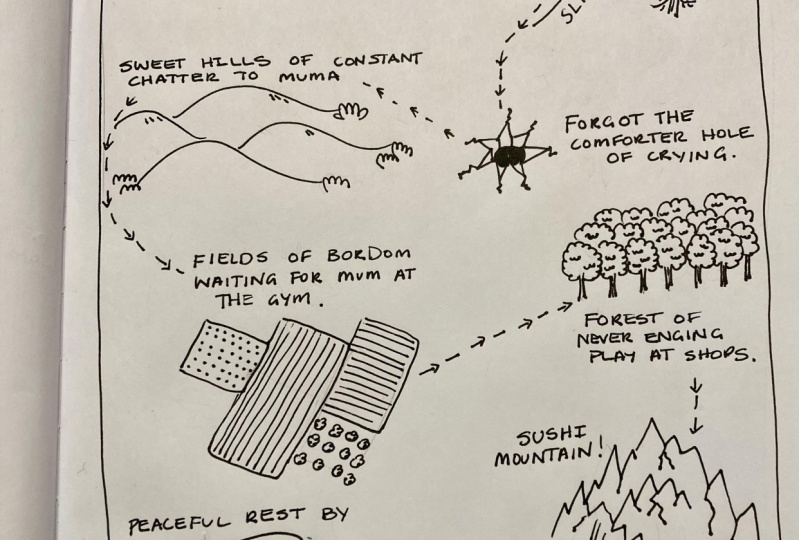 SL
SWEET HILLS OF CONSTANT
CHATTER TO MUMA
FORGOT THE
COMFORTER HOLE
OF CRYING.
FIELDS OF BORDOM
WAITING FOR MUM AT
THE GYM.
FOREST OF
NEVER ENGING
PLAY AT SHOPS.
SUSHI
MOUNTAIN!
PEACEFUL REST BY